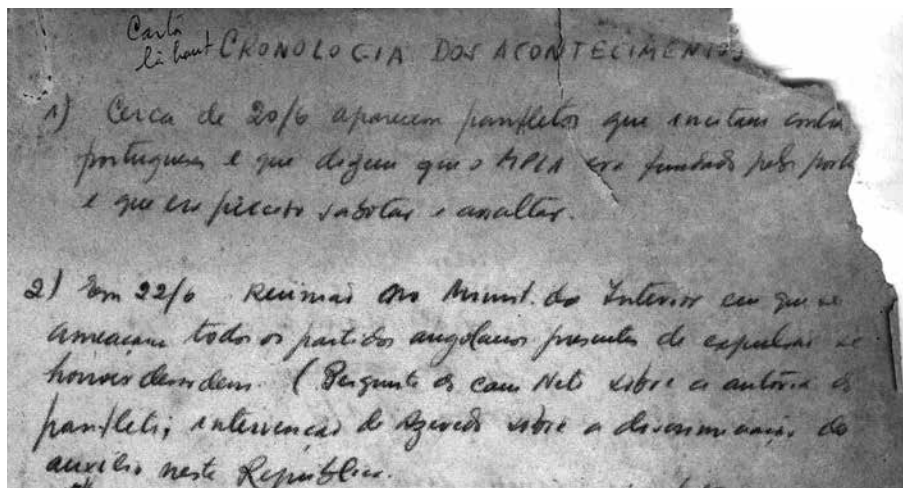 Cartó
là haut
CRONOLOGIA DOS ACONTECIMENTOS
1) Cerca de 20/6 aparecem panfletos que incitam contra
portugueses e que dizem que o MPLA era fundado pelos
e que era preciso sabotar e assaltar.
2) Em 22/6 Reunião no Minist. do Interior em que se
ameaçam todos os partidos angolanos presentes de expulsão se
houver desordens. (Pergunta de Neto sobre a autoria do
panfleto; intervenção de Azevedo sobre a discriminação do
auxílio nesta República.